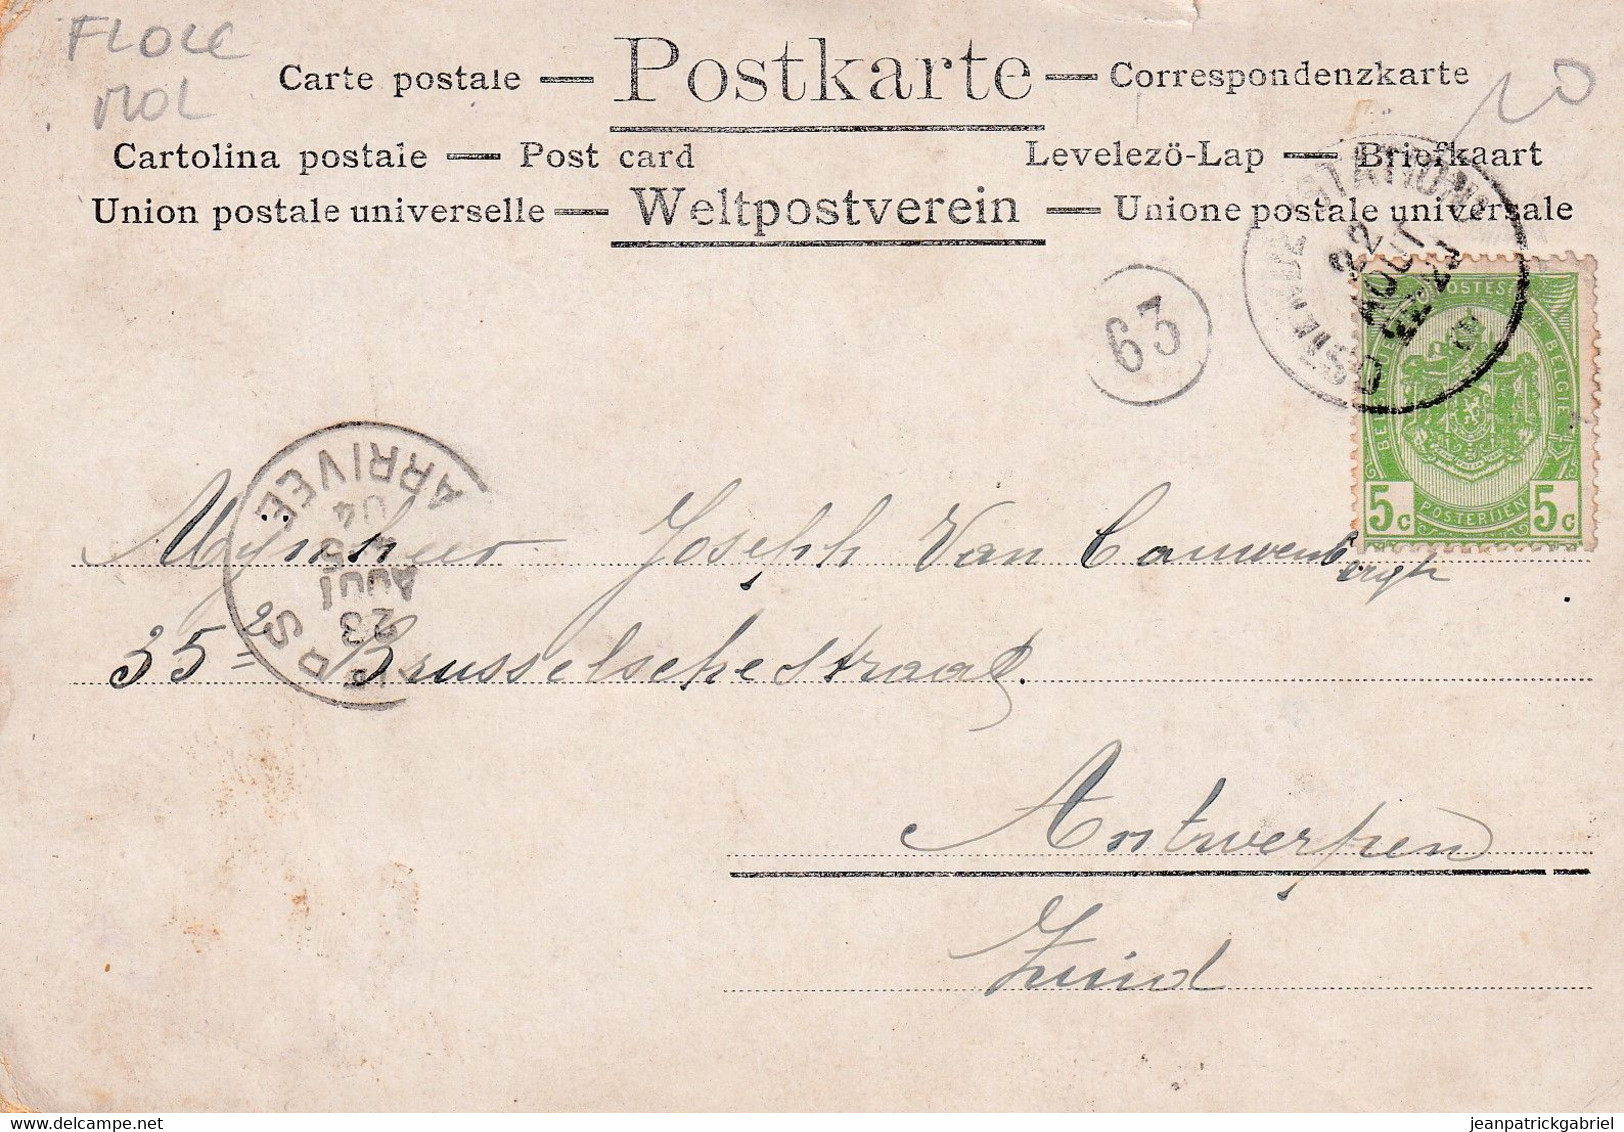 FLORE
MOL
Carte postale — Postkarte — Correspondenzkarte
Cartolina postale — Post card Levelezö-Lap — Briefkaart
Union postale universelle — Weltpostverein — Unione postale universale
(STATION)
22
AOUT
63
POSTES
BELGIE
5c 5c
POSTERIJEN
ARRIVÉE
04
AOUT
23
Mijnheer Joseph Van Cauwenbergh
35² Brusselschestraat.
Antwerpen
Zuid
jeanpatrickgabriel